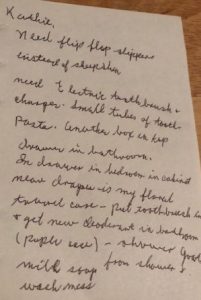 Kathie,
Need flip flop slippers
instead of sheepskin
need Electric toothbrush +
charger. Small tubes of tooth
paste. Another box in top
drawer in bathroom.
In drawer in bedroom in cabinet
near drapes is my floral
travel case - put toothbrush in
+ get new deodorant in bathroom
(purple one) - shower
milk soap from shower +
wash